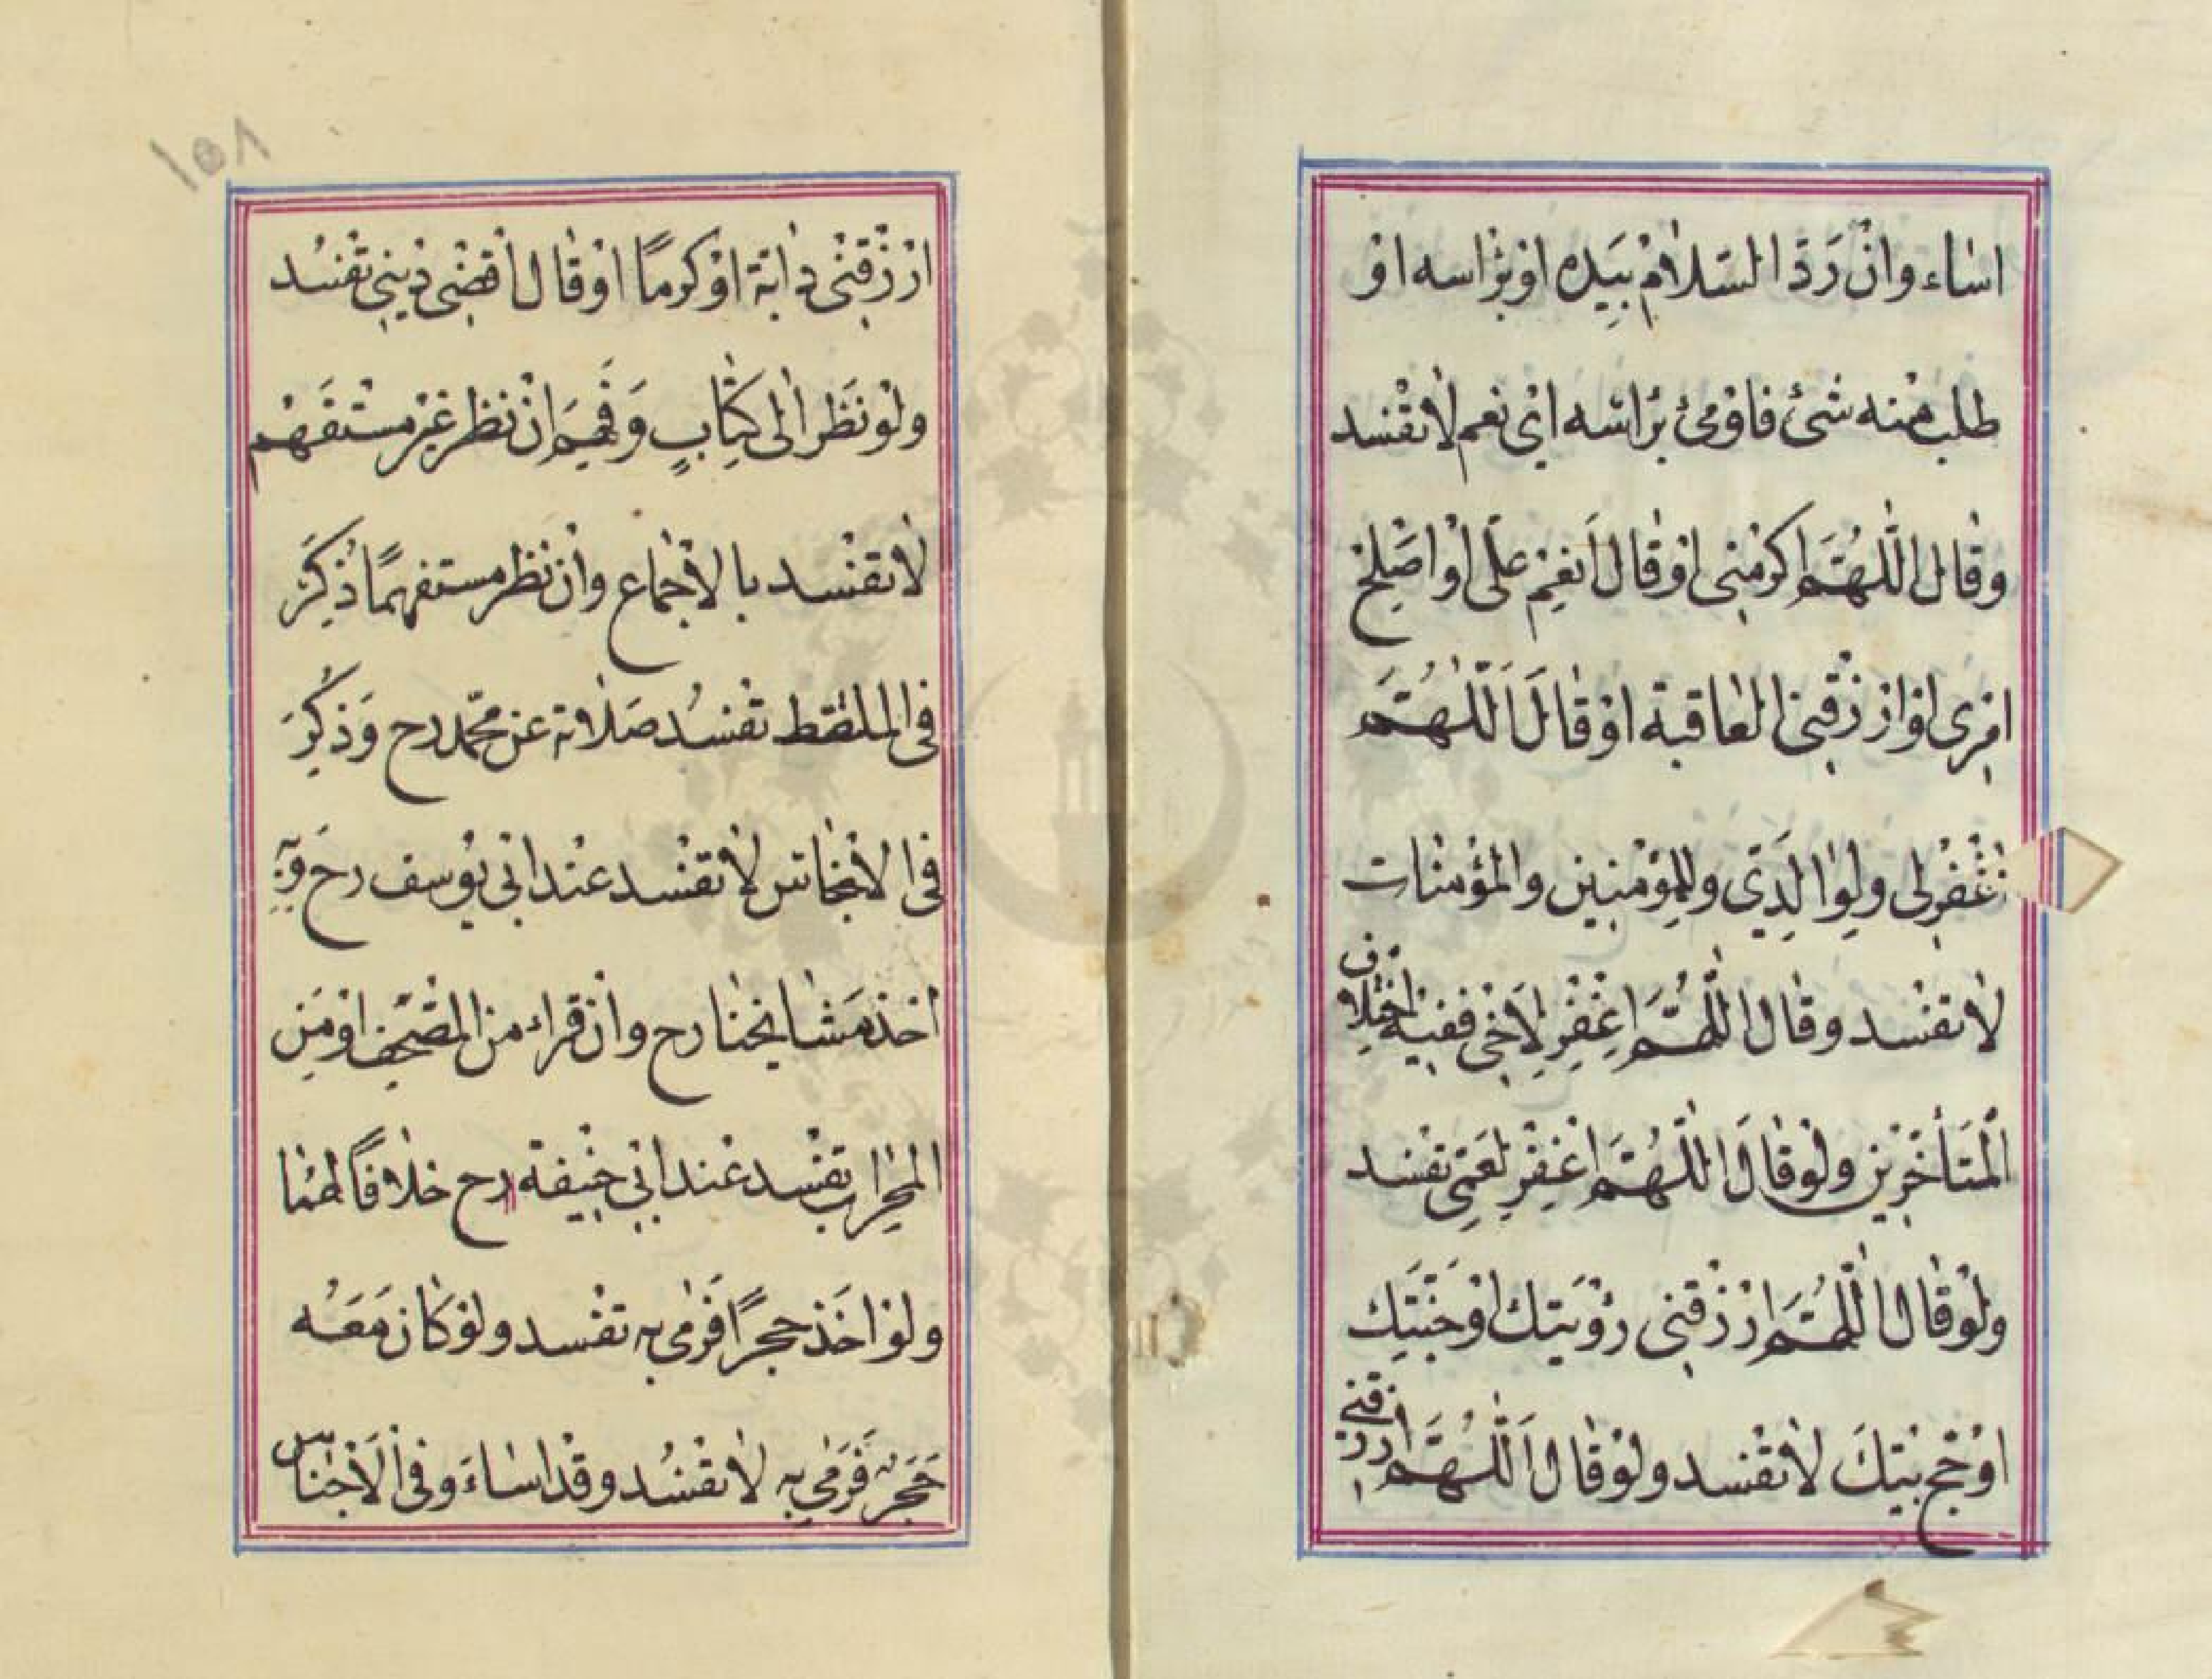 اساء وان ردّ السّلام بيده او براسه او
طلب منه شئ فاومئ براسه اى نعم لا تفسد
وقال اللّهمّ اكرمنى او قال انعم علىّ او اصلح
امرى او ارزقنى العاقبة او قال اللّهمّ
اغفرلى ولوالدىّ وللمؤمنين والمؤمنات
لا تفسد وقال اللّهمّ اغفر لاخى ففيه اختلاف
المتأخرين ولو قال اللّهمّ اغفر لعمى تفسد
ولو قال اللّهمّ ارزقنى رؤيتك او جنّتك
او حج بيتك لا تفسد ولو قال اللّهمّ ارزقنى
١٥٨
ارزقنى دابّة او كرمًا او قال اقض دينى تفسد
ولو نظر الى كتاب وفهم ان نظر غير مستفهم
لا تفسد بالاجماع وان نظر مستفهمًا ذكر
فى الملتقط تفسد صلاته عن محمّد رح وذكر
فى الاجناس لا تفسد عند ابى يوسف رح وبه
اخذ مشايخنا رح وان قراء من المصحف او من
المحراب تفسد عند ابى حنيفة رح خلافًا لهما
ولو اخذ حجرًا فرمى به تفسد ولو كان معه
حجر فرمى به لا تفسد وقد اساء وفى الاجناس